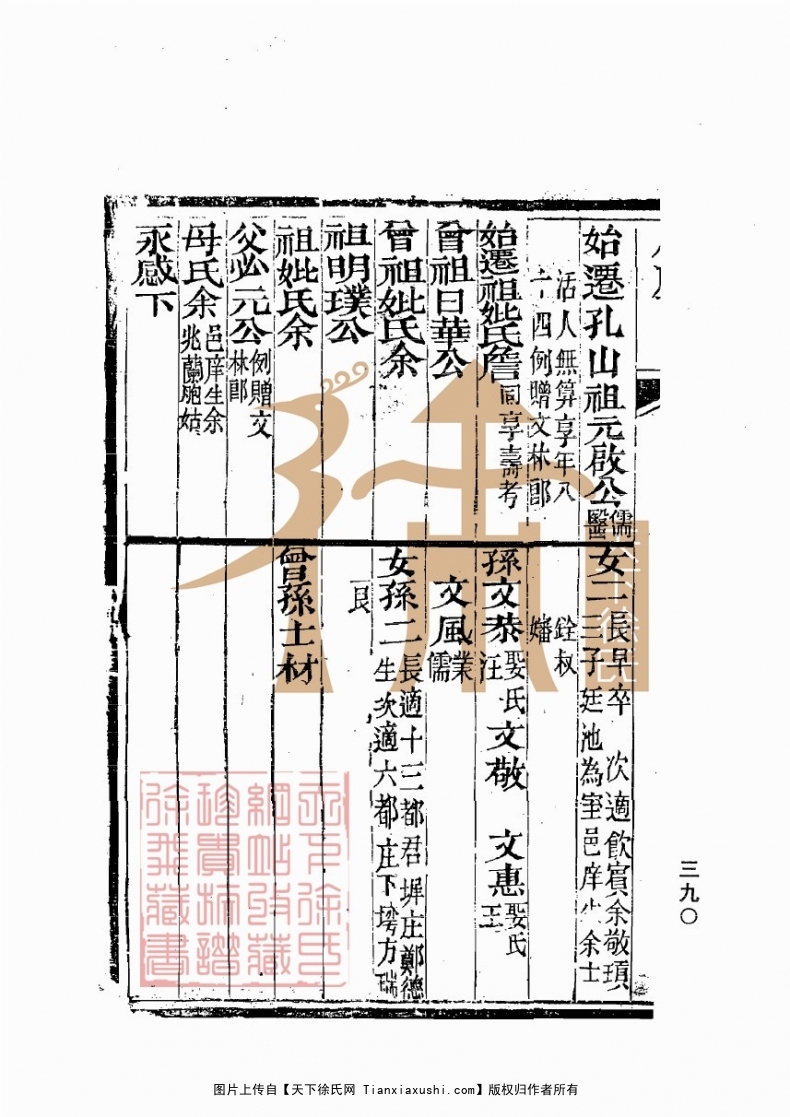 始遷孔山祖元啟公儒醫
活人無算享年八
十四例贈文林郎
始遷祖妣氏詹同享壽考
曾祖日華公
曾祖妣氏余
祖明璞公
祖妣氏余
父必元公例贈文林郎
母氏余邑庠生余兆蘭胞姑
永感下
女二長早卒 次適飲賓余敬瑱三子廷池為室邑庠生余士
銓叔
嬸
孫文恭娶氏汪 文敬 文惠娶氏王
文風業儒
女孫二長適十三都君墀庄鄭德生次適六都庄下塝方瑞
良
曾孫士材
三九〇
天下徐氏
天下徐氏網站收藏珍貴撫譜徐飛藏書
图片上传自【天下徐氏网 Tianxiaxushi.com】版权归作者所有